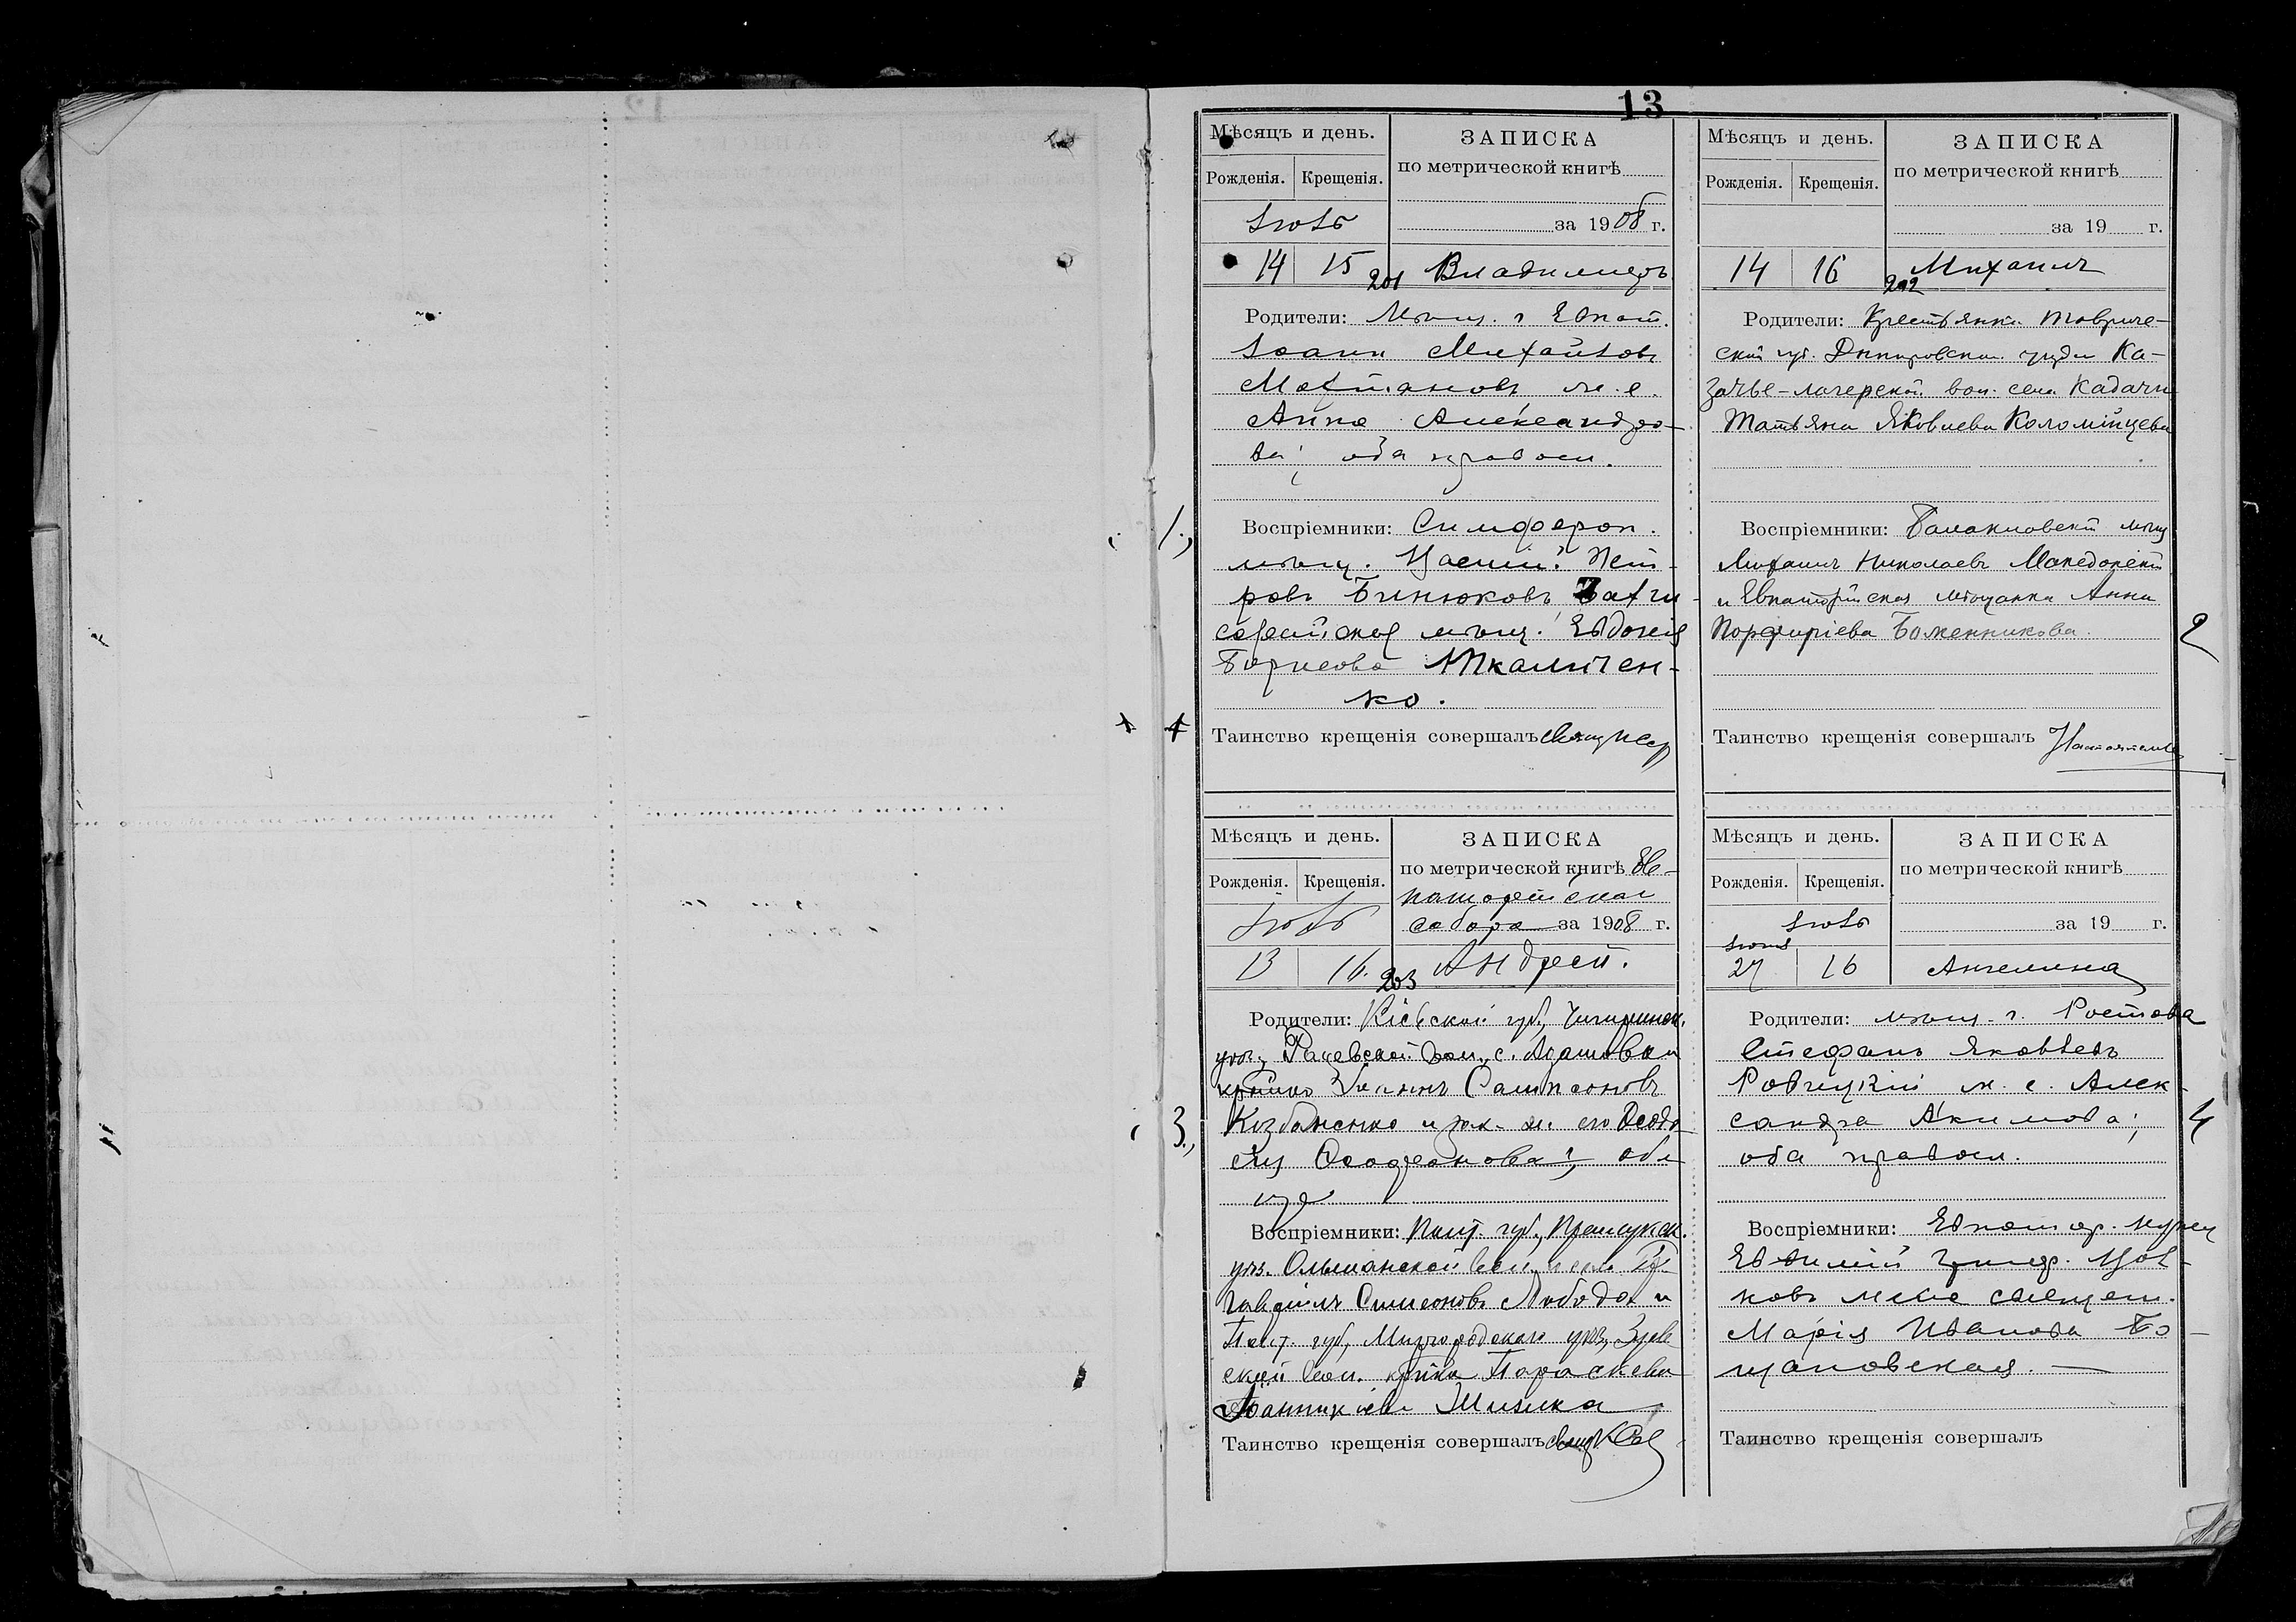 13
Мѣсяцъ и день.
Рожденія. Крещенія.
ЗАПИСКА
по метрической книгѣ
Іюль
за 1908 г.
14 15 201 Владимиръ
Родители: Мѣщ. г. Евпат.
Іоанн Михайловъ
ж. е.
Анна Александро-
ва; оба правосл.
Воспріемники: Симфероп.
мѣщ. Пет-
ровъ Бинюковъ, Бахчи-
сарайская мѣщ. Евдокія
Борисова Шкамичен-
ко.
Таинство крещенія совершалъ
1.,
Мѣсяцъ и день.
Рожденія. Крещенія.
ЗАПИСКА
по метрической книгѣ
за 19 г.
14 16 202 Михаилъ
Родители: Крестьянка Тавриче-
ской губ. Днѣпровскаго уѣзда Ка-
зачье-лагерской вол. села Кадачи
Татьяна Яковлева Коломійцева
Воспріемники: Балаклавскій мѣщ.
Михаилъ Николаевъ Македонскій
и Евпаторійская мѣщанка Анна
Порфиріева Баженникова.
2
Таинство крещенія совершалъ Настоятель
Мѣсяцъ и день.
Рожденія. Крещенія.
ЗАПИСКА
по метрической книгѣ Ев-
паторійскаго
Іюль
собора за 1908 г.
13 16. 203 Андрей.
Родители: Кіевской губ., Чигиринск.
уѣз., Рацевской вол., с. Адамовки
Іоаннъ Сампсоновъ
и зак. ж. его Ѳеодо-
сія оба
пр.
Воспріемники: Полт. губ., Прилукск.
уѣз. Ольшанской вол.
Гавріилъ Симеоновъ Лобода и
Полт. губ., Миргородскаго уѣз., Зуев-
ской вол. кр-нка Параскева
Іоанникіева Шишка
Таинство крещенія совершалъ
3.,
Мѣсяцъ и день.
Рожденія. Крещенія.
ЗАПИСКА
по метрической книгѣ
Іюль
за 19 г.
Іюня
27 16 Ангелина
Родители: мѣщ. г. Ростова
Стефанъ Яковлевъ
Ровчицкій ж. е. Алек-
сандра Акимова;
оба правосл.
4
Воспріемники: Евпатор. купец
Евѳимій Григор. Цов-
жена священ.
Марія Иванова Бо-
щановская.
Таинство крещенія совершалъ